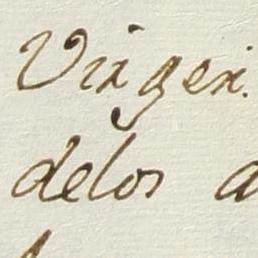 Virgen.
delos a